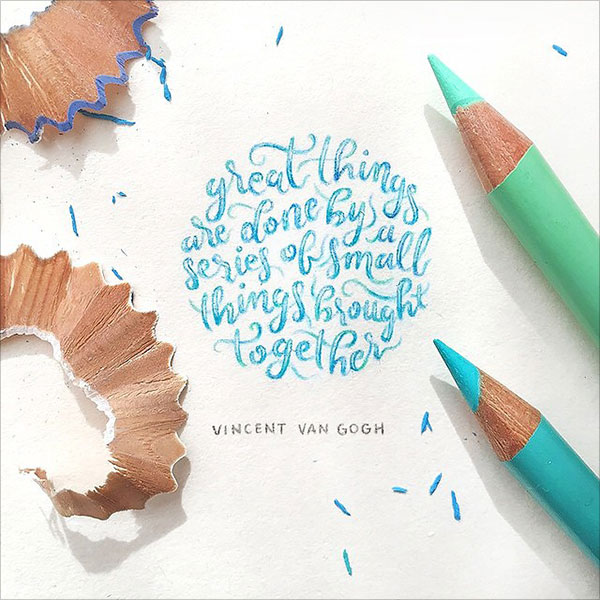 great things
are done by a
series of small
things brought
together
VINCENT VAN GOGH